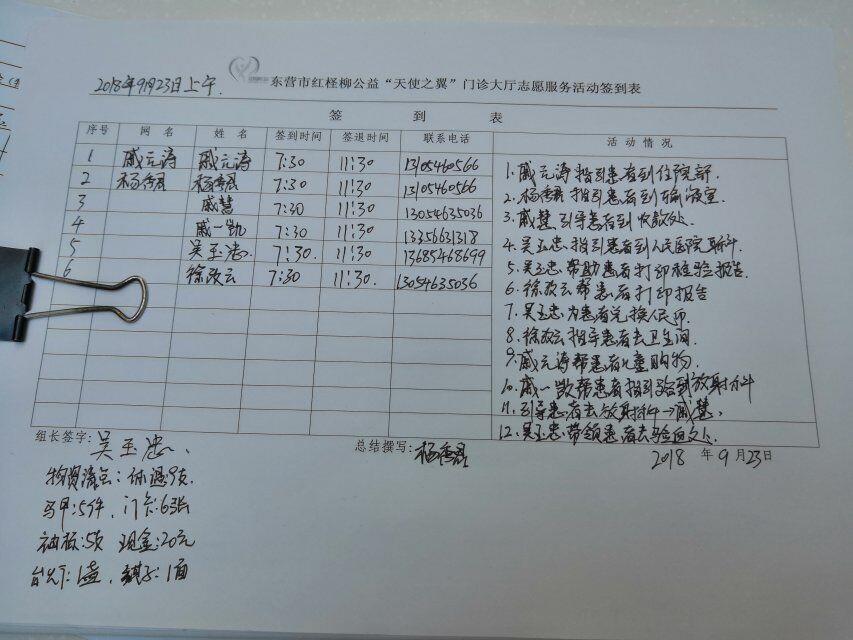 2018年9月23日上午
东营市红柽柳公益“天使之翼”门诊大厅志愿服务活动签到表
签 到 表
序号 网 名 姓 名 签到时间 签退时间 联系电话 活 动 情 况
1 戚元涛 戚元涛 7:30 11:30 13105460566
2 杨香君 杨香君 7:30 11:30 13105460566
3 戚慧 7:30 11:30 13054635036
4 戚一凯 7:30 11:30 13356631318
5 吴玉忠 7:30. 11:30 13685468699
6 徐改云 7:30 11:30. 13054635036
1. 戚元涛指引患者到住院部.
2. 杨香君指引患者到输液室
3. 戚慧引导患者到收款处
4. 吴玉忠指引患者到人民医院眼科.
5. 吴玉忠帮助患者打印检验报告.
6. 徐改云帮患者打印报告
7. 吴玉忠为患者兑换人民币
8. 徐改云指导患者去卫生间.
9. 戚元涛帮患者儿童购物.
10. 戚一凯帮患者指引到放射科
11. 引导患者去放射科→戚慧.
12. 吴玉忠带领患者去验血处.
组长签字: 吴玉忠.
总结撰写: 杨香君
2018 年 9 月 23 日
物资清点:
马甲:5件, 门卡:6张
现金:20元
台卡:1盒, 旗子:1面